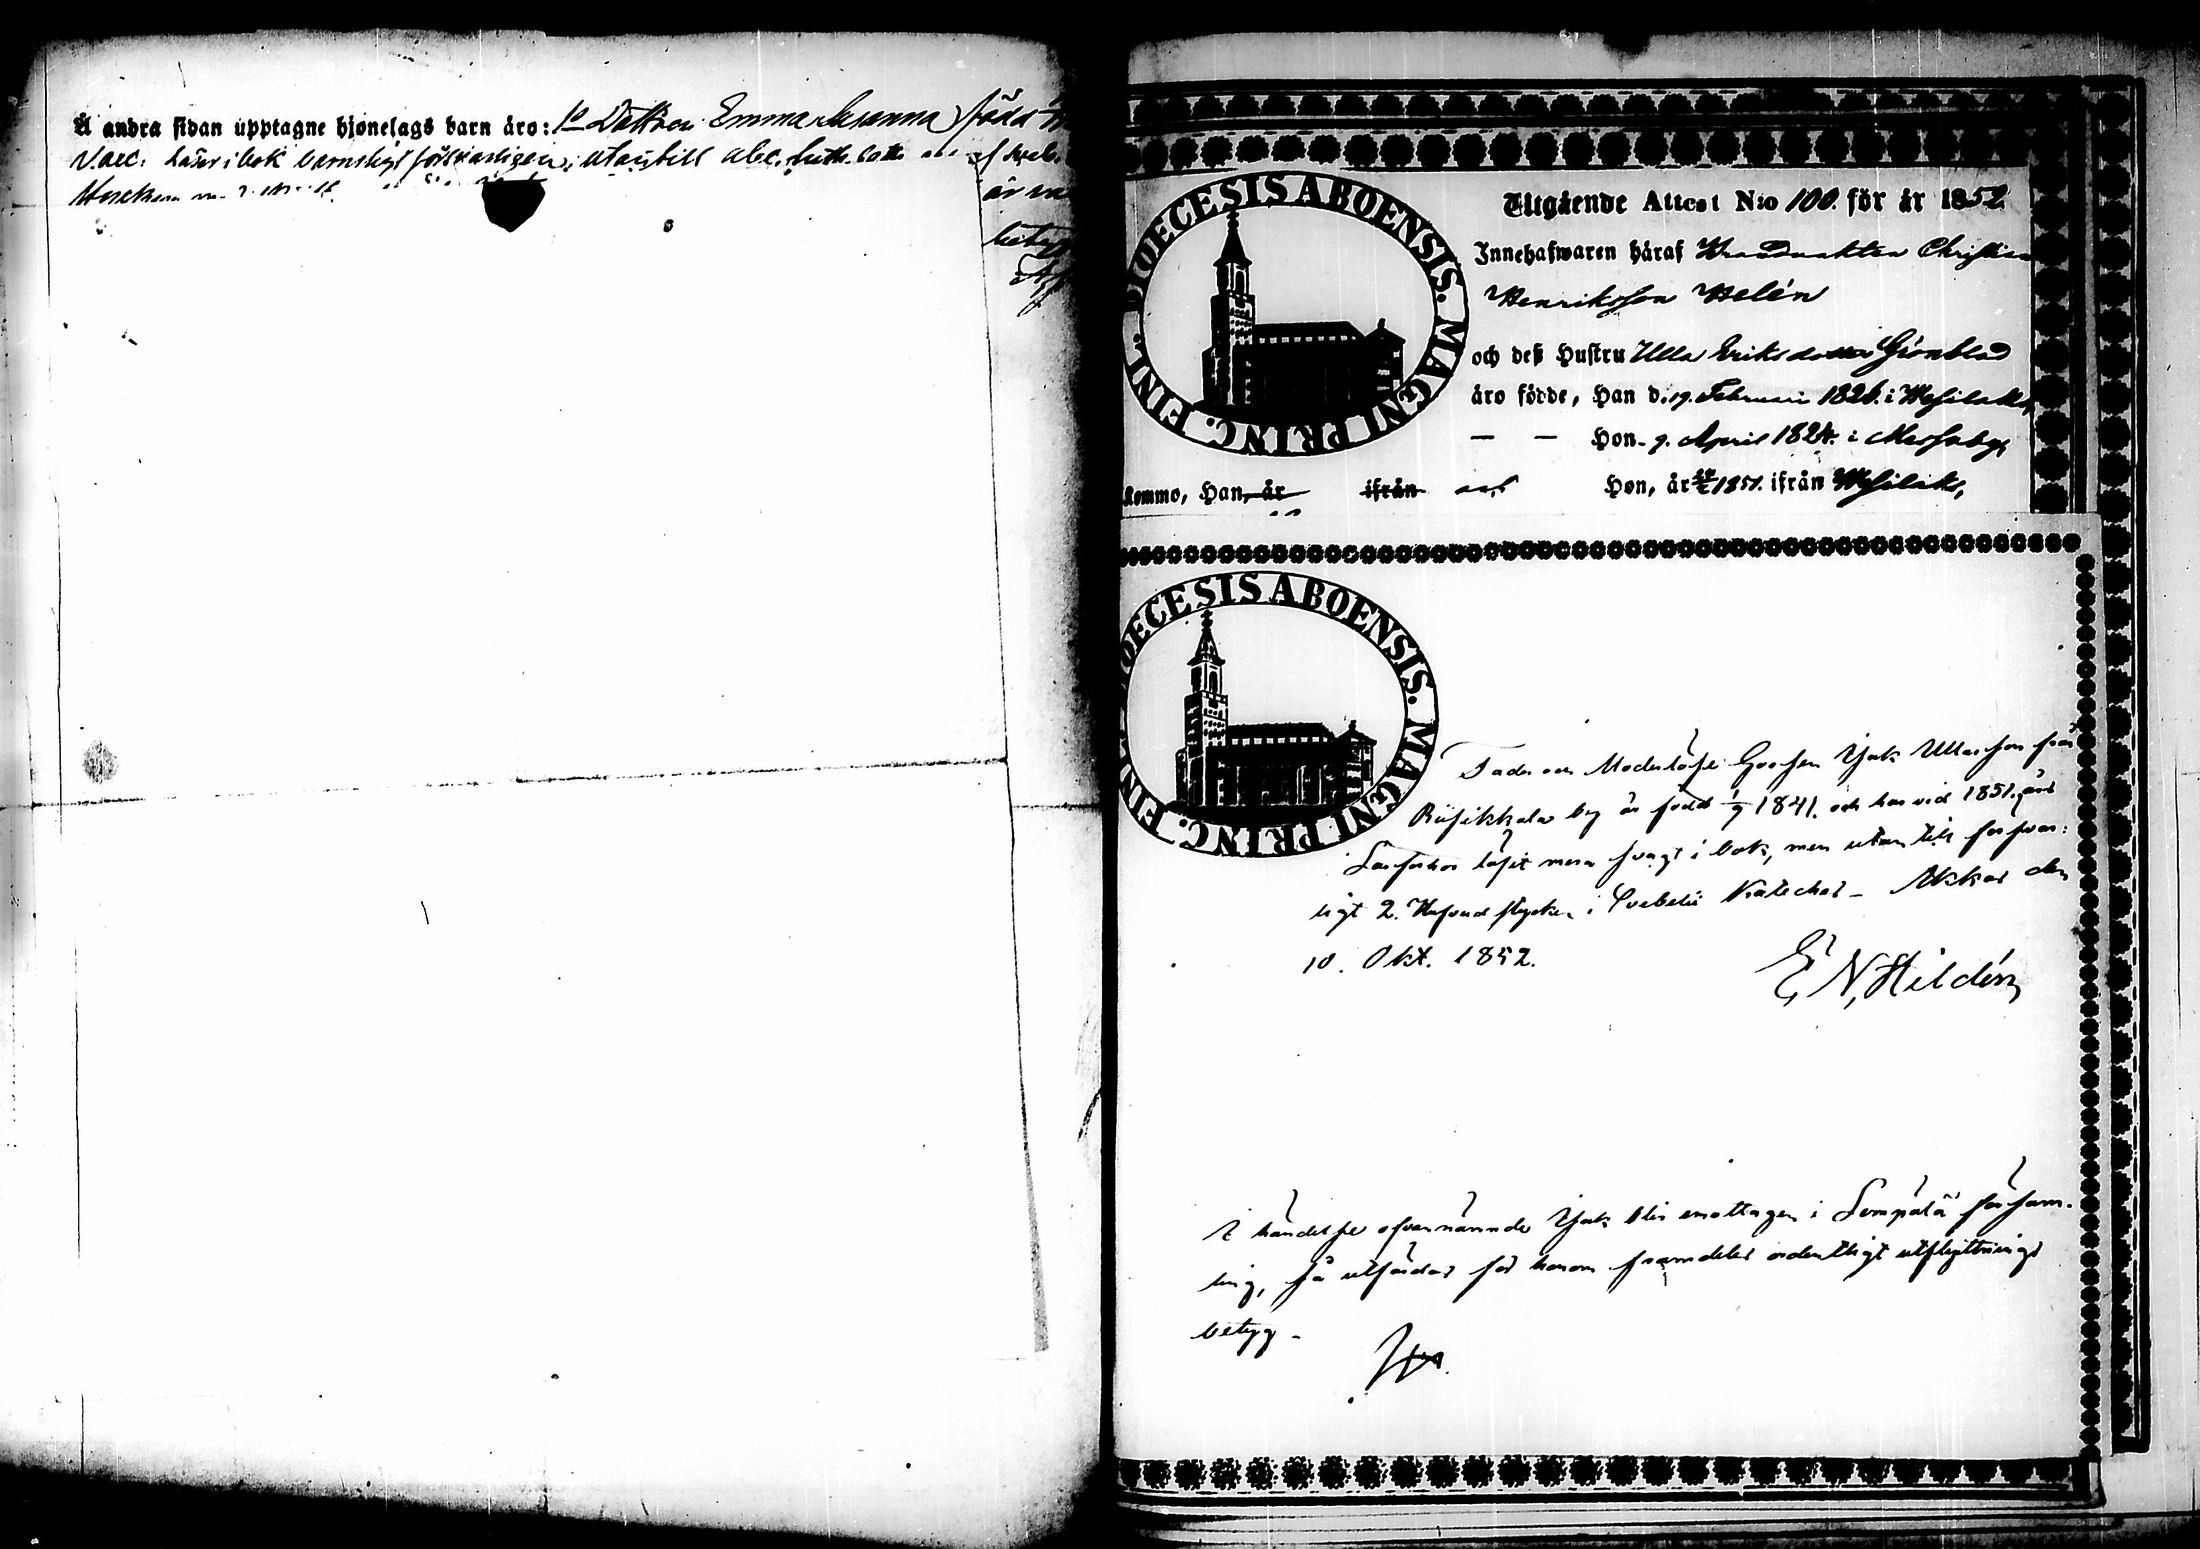 Å andra sidan upptagne hjonelags barn äro: 1o Dottren Emma Susanna född
Vacc. Läser i bok barnsligt försvarligen, utantill abc.
är
betyg
DIOECESIS ABOENSIS. MAGNI PRINC. FINL.
Utgående Attest N:o 100. för år 1852
Innehafwaren häraf Christian
Henriksson Helén
och deß Hustru Ulla Eriksdotter Grönblad
äro födde, Han d. 19. Februari 1826. i Wesilaks,
— — Hon 9. April 1824. i Messuby,
kommo, Han, år ifrån Hon, år 1851. ifrån Wesilaks,
DIOECESIS ABOENSIS. MAGNI PRINC. FINL.
Fader och Moderlöse Gossen Isak från
by är född 1/9 1841. och har vid 1851. års
Läseförhör läsit mera svagt i bok, men utantill försvar:
ligt 2. Hufvudstycken i Svebelii Kateches – Akkas den
10. Okt. 1852.
E N, Hildén
I händelse ofvannämnde Isak blir emottagen i Lempälä försam-
ling, så utfärdas för honom framdeles ordentligt utflyttnings
betyg –